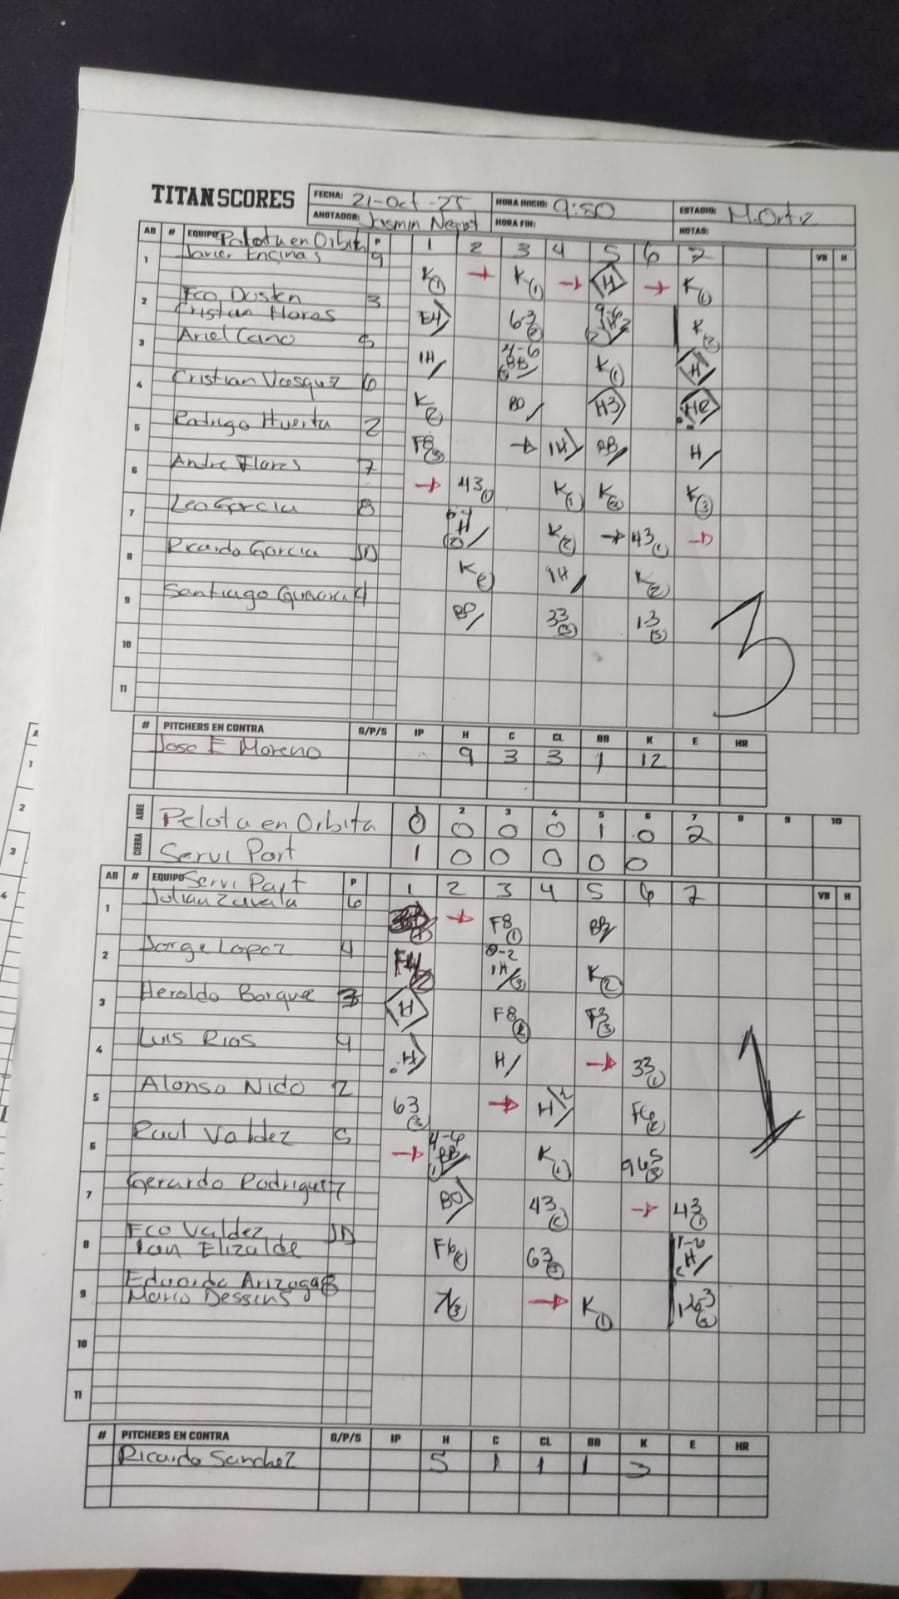 TITAN SCORES
FECHA: 21-Oct-25 HORA INICIO: 9:50 ESTADIO: M.Ortiz
ANOTADOR: Jasmin HORA FIN: NOTAS:
AB # EQUIPO Pelota en Orbita P 1 2 3 4 5 6 7 VB H
1 Javier Encinas 9 K① → K① → H → K①
2 Fco Dusten 3
Cristian Flores E4 63② K②
3 Ariel Cano 5 1H 4-6 BB K① H
4 Cristian Vasquez 6 K② BD H3 HR
5 Rodrigo Huerta 2 F8③ → 1H BB H
6 Andre Flores 7 → 43① K① K③ K③
7 Leo Garcia 8 H K② → 43① →
8 Ricardo Garcia JD K② 1H K②
9 Santiago 4 BB 33③ 1-3③
10
11
3
# PITCHERS EN CONTRA G/P/S IP H C CL BB K E HR
Jose E Moreno 9 3 3 1 12
ABRE 1 2 3 4 5 6 7 8 9 10
Pelota en Orbita 0 0 0 0 1 0 2
CIERRA Servi Part 1 0 0 0 0 0
AB # EQUIPO Servi Part P 1 2 3 4 5 6 7 VB H
1 Julian Zavala 6 → F8① BB
2 Jorge Lopez 4 1H K②
3 Heroldo Borquez 3 H F8② F3③
4 Luis Rios 9 H H → 33①
5 Alonso Nido 2 63③ → H F6②
6 Raul Valdez 5 → 4-6 BB K① 945③
7 Gerardo Rodriguez 7 BD 43② → 43①
8 Fco Valdez JD
Ian Elizalde F6② 63③ H
9 Eduardo Arizaga 8
Mario Dessens → K①
10
11
1
# PITCHERS EN CONTRA G/P/S IP H C CL BB K E HR
Ricardo Sanchez 5 1 1 1 3